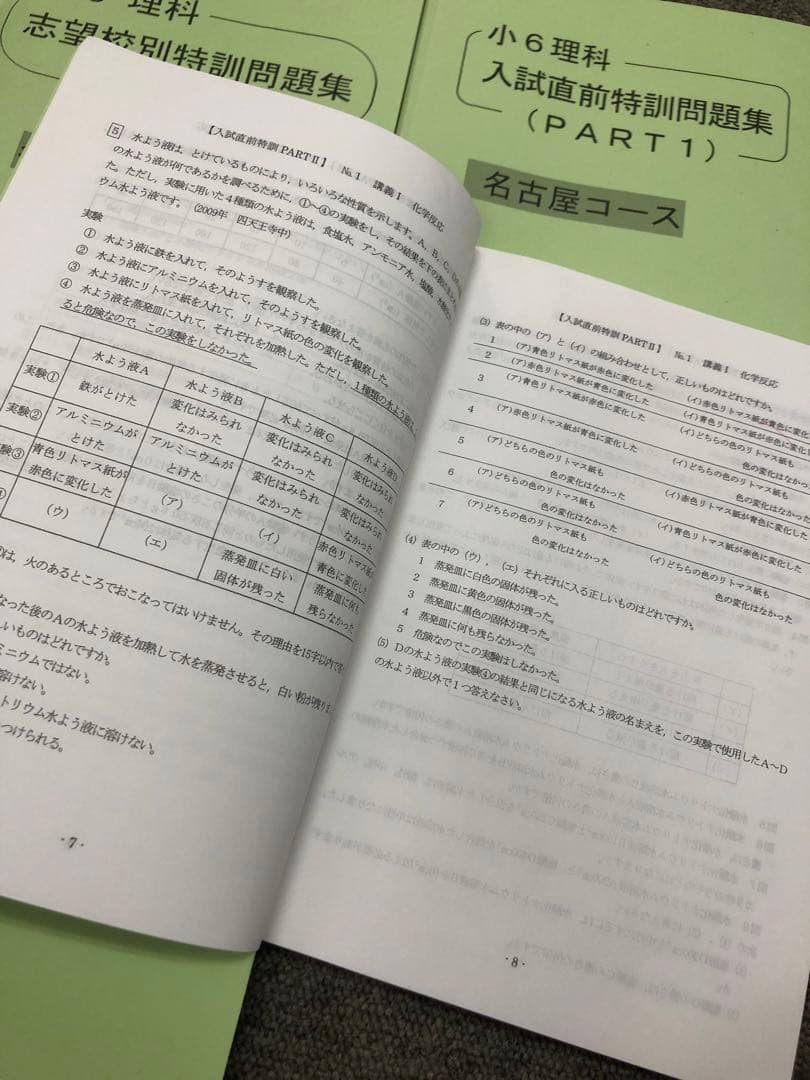 小6理科
志望校別特訓問題集
小6理科
入試直前特訓問題集
(PART1)
名古屋コース
【入試直前特訓 PARTⅡ】 №1 講義Ⅰ 化学反応
5 水よう液は,とけているものにより,いろいろな性質を示します。A,B,C,
の水よう液が何であるかを調べるために,①~④の実験をし,その結果を下の
た。ただし,実験に用いた4種類の水よう液は,食塩水,アンモニア水,塩酸,
ウム水よう液です。(2009年 四天王寺中)
実験
① 水よう液に鉄を入れて,そのようすを観察した。
② 水よう液にアルミニウムを入れて,そのようすを観察した。
③ 水よう液にリトマス紙を入れて,リトマス紙の色の変化を観察した。
④ 水よう液を蒸発皿に入れて,それぞれを加熱した。ただし,1種類の水よう液は,
ると危険なので,この実験をしなかった。
水よう液A 水よう液B 水よう液C 水よう液D
実験① 鉄がとけた 変化はみられなかった 変化はみられなかった 変化はみられなかった
実験② アルミニウムがとけた アルミニウムがとけた 変化はみられなかった 変化はみられなかった
実験③ 青色リトマス紙が赤色に変化した (ア) (イ) 赤色リトマス紙が青色に変化した
(ウ) (エ) 蒸発皿に白い固体が残った 蒸発皿に何も残らなかった
は,火のあるところでおこなってはいけません。その理由を15字以内で
なった後のAの水よう液を加熱して水を蒸発させると,白い粉が残りま
しいものはどれですか。
ミニウムではない。
溶けない。
トリウム水よう液に溶けない。
つけられる。
・7・
【入試直前特訓 PARTⅡ】 №1 講義Ⅰ 化学反応
(3) 表の中の(ア)と(イ)の組み合わせとして,正しいものはどれですか。
1 (ア)青色リトマス紙が赤色に変化した (イ)赤色リトマス紙が青色に変化
2 (ア)赤色リトマス紙が青色に変化した (イ)青色リトマス紙が赤色に変化し
3 (ア)青色リトマス紙が赤色に変化した (イ)どちらの色のリトマス紙も
色の変化はなかった
4 (ア)赤色リトマス紙が青色に変化した (イ)どちらの色のリトマス紙も
色の変化はなかった
5 (ア)どちらの色のリトマス紙も (イ)赤色リトマス紙が青色に変化した
色の変化はなかった
6 (ア)どちらの色のリトマス紙も (イ)青色リトマス紙が赤色に変化した
色の変化はなかった
7 (ア)どちらの色のリトマス紙も (イ)どちらの色のリトマス紙も
色の変化はなかった 色の変化はなかった
(4) 表の中の(ウ),(エ)それぞれに入る正しいものはどれですか。
1 蒸発皿に白色の固体が残った。
2 蒸発皿に黄色の固体が残った。
3 蒸発皿に黒色の固体が残った。
4 蒸発皿に何も残らなかった。
5 危険なのでこの実験はしなかった。
(5) Dの水よう液の実験④の結果と同じになる水よう液の名まえを,この実験で使用したA~D
の水よう液以外で1つ答えなさい。
・8・